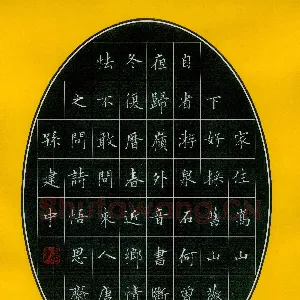 家住嵩山
下好採舊山薇
自省游泉石何曾
夜歸嶺外音書斷
冬復歷春近鄉情
怯不敢問來人唐
之問詩悟思
孫建中